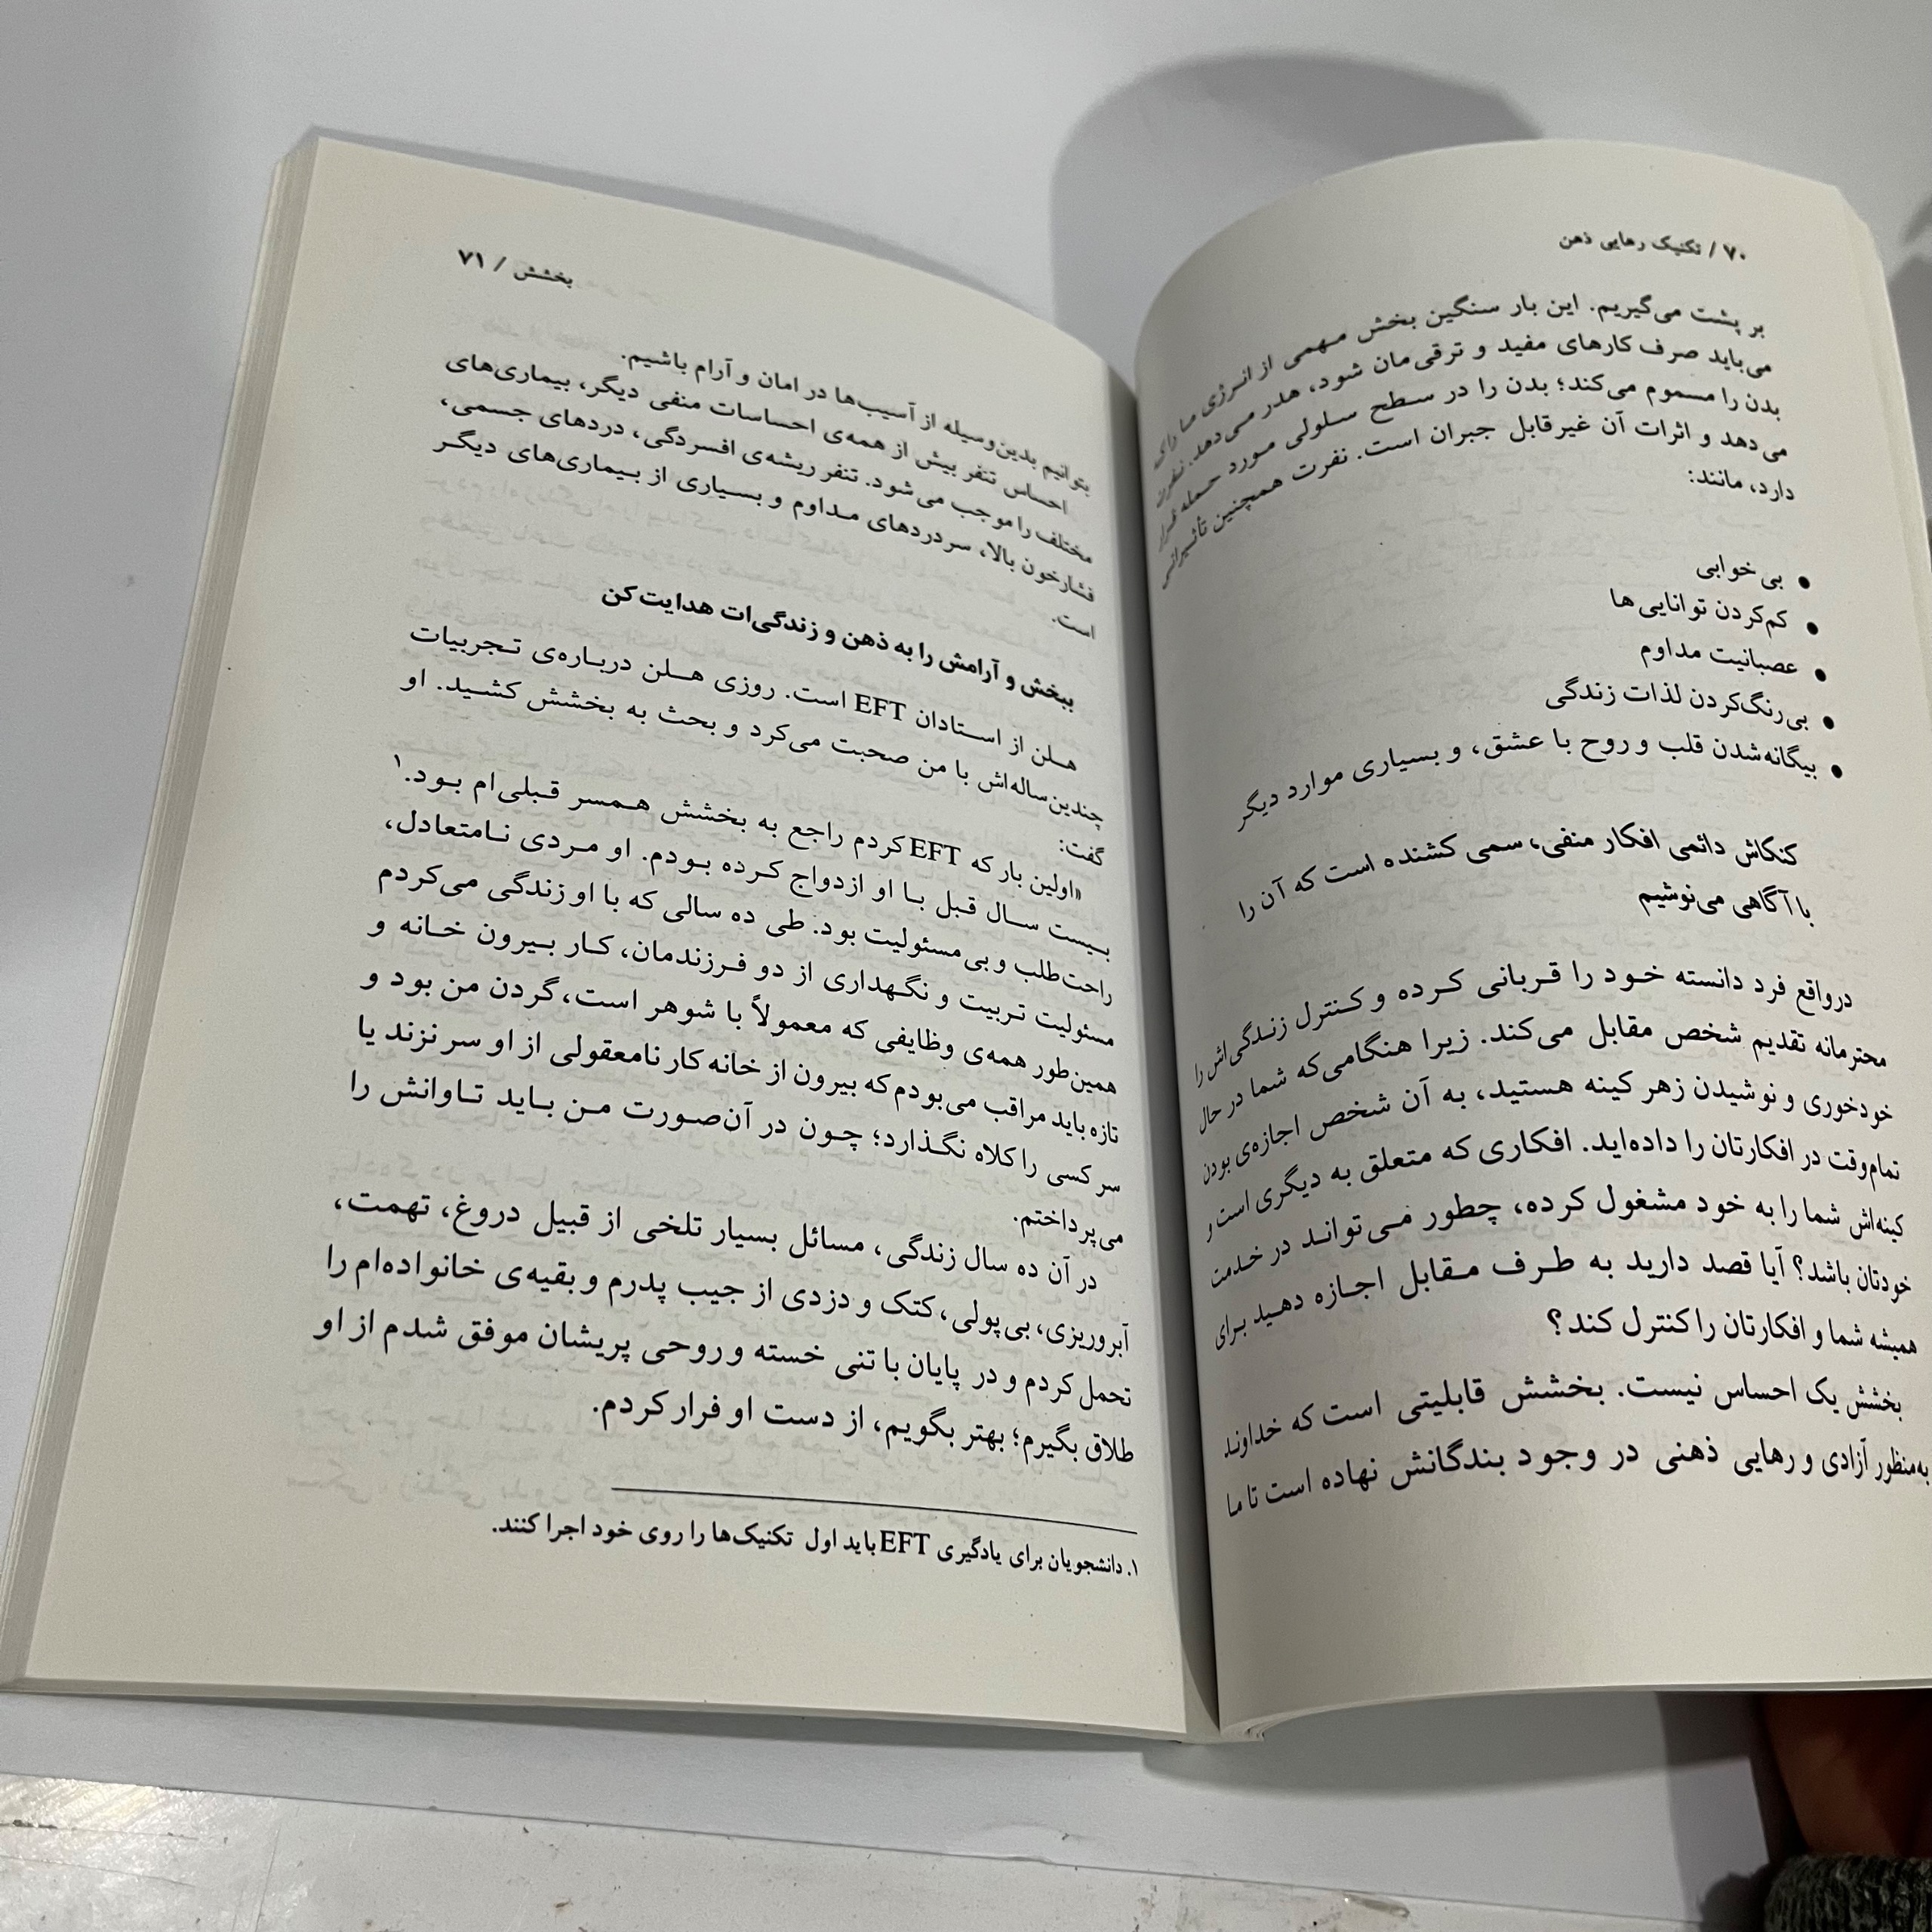 ۷۰ / تکنیک رهایی ذهن
بر پشت می‌گیریم. این بار سنگین بخش مهمی از انرژی ما را که
می‌باید صرف کارهای مفید و ترقی‌مان شود، هدر می‌دهد. نفرت
بدن را مسموم می‌کند؛ بدن را در سطح سلولی مورد حمله قرار
می‌دهد و اثرات آن غیرقابل جبران است. نفرت همچنین تأثیراتی
دارد، مانند:
● بی‌خوابی
● کم‌کردن توانایی‌ها
● عصبانیت مداوم
● بی‌رنگ‌کردن لذات زندگی
● بیگانه‌شدن قلب و روح با عشق، و بسیاری موارد دیگر
کنکاش دائمی افکار منفی، سمی کشنده است که آن را
با آگاهی می‌نوشیم
درواقع فرد دانسته خود را قربانی کرده و کنترل زندگی‌اش را
محترمانه تقدیم شخص مقابل می‌کند. زیرا هنگامی‌که شما در حال
خودخوری و نوشیدن زهر کینه هستید، به آن شخص اجازه‌ی بودن
تمام‌وقت در افکارتان را داده‌اید. افکاری که متعلق به دیگری است و
کینه‌اش شما را به خود مشغول کرده، چطور می‌تواند در خدمت
خودتان باشد؟ آیا قصد دارید به طرف مقابل اجازه دهید برای
همیشه شما و افکارتان را کنترل کند؟
بخشش یک احساس نیست. بخشش قابلیتی است که خداوند
به‌منظور آزادی و رهایی ذهنی در وجود بندگانش نهاده است تا ما
بخشش / ۷۱
بتوانیم بدین‌وسیله از آسیب‌ها در امان و آرام باشیم.
احساس تنفر بیش از همه‌ی احساسات منفی دیگر، بیماری‌های
مختلف را موجب می‌شود. تنفر ریشه‌ی افسردگی، دردهای جسمی،
فشارخون بالا، سردردهای مداوم و بسیاری از بیماری‌های دیگر
است.
ببخش و آرامش را به ذهن و زندگی‌ات هدایت‌کن
هلن از استادان EFT است. روزی هلن درباره‌ی تجربیات
چندین‌ساله‌اش با من صحبت می‌کرد و بحث به بخشش کشید. او
گفت:
«اولین بار که EFT کردم راجع به بخشش همسر قبلی‌ام بود.۱
بیست سال قبل با او ازدواج کرده بودم. او مردی نامتعادل،
راحت‌طلب و بی‌مسئولیت بود. طی ده سالی که با او زندگی می‌کردم
مسئولیت تربیت و نگهداری از دو فرزندمان، کار بیرون خانه و
همین‌طور همه‌ی وظایفی که معمولاً با شوهر است، گردن من بود و
تازه باید مراقب می‌بودم که بیرون از خانه کار نامعقولی از او سر نزند یا
سر کسی را کلاه نگذارد؛ چون در آن‌صورت من باید تاوانش را
می‌پرداختم.
در آن ده سال زندگی، مسائل بسیار تلخی از قبیل دروغ، تهمت،
آبروریزی، بی‌پولی، کتک و دزدی از جیب پدرم و بقیه‌ی خانواده‌ام را
تحمل کردم و در پایان با تنی خسته و روحی پریشان موفق شدم از او
طلاق بگیرم؛ بهتر بگویم، از دست او فرار کردم.
۱. دانشجویان برای یادگیری EFT باید اول تکنیک‌ها را روی خود اجرا کنند.